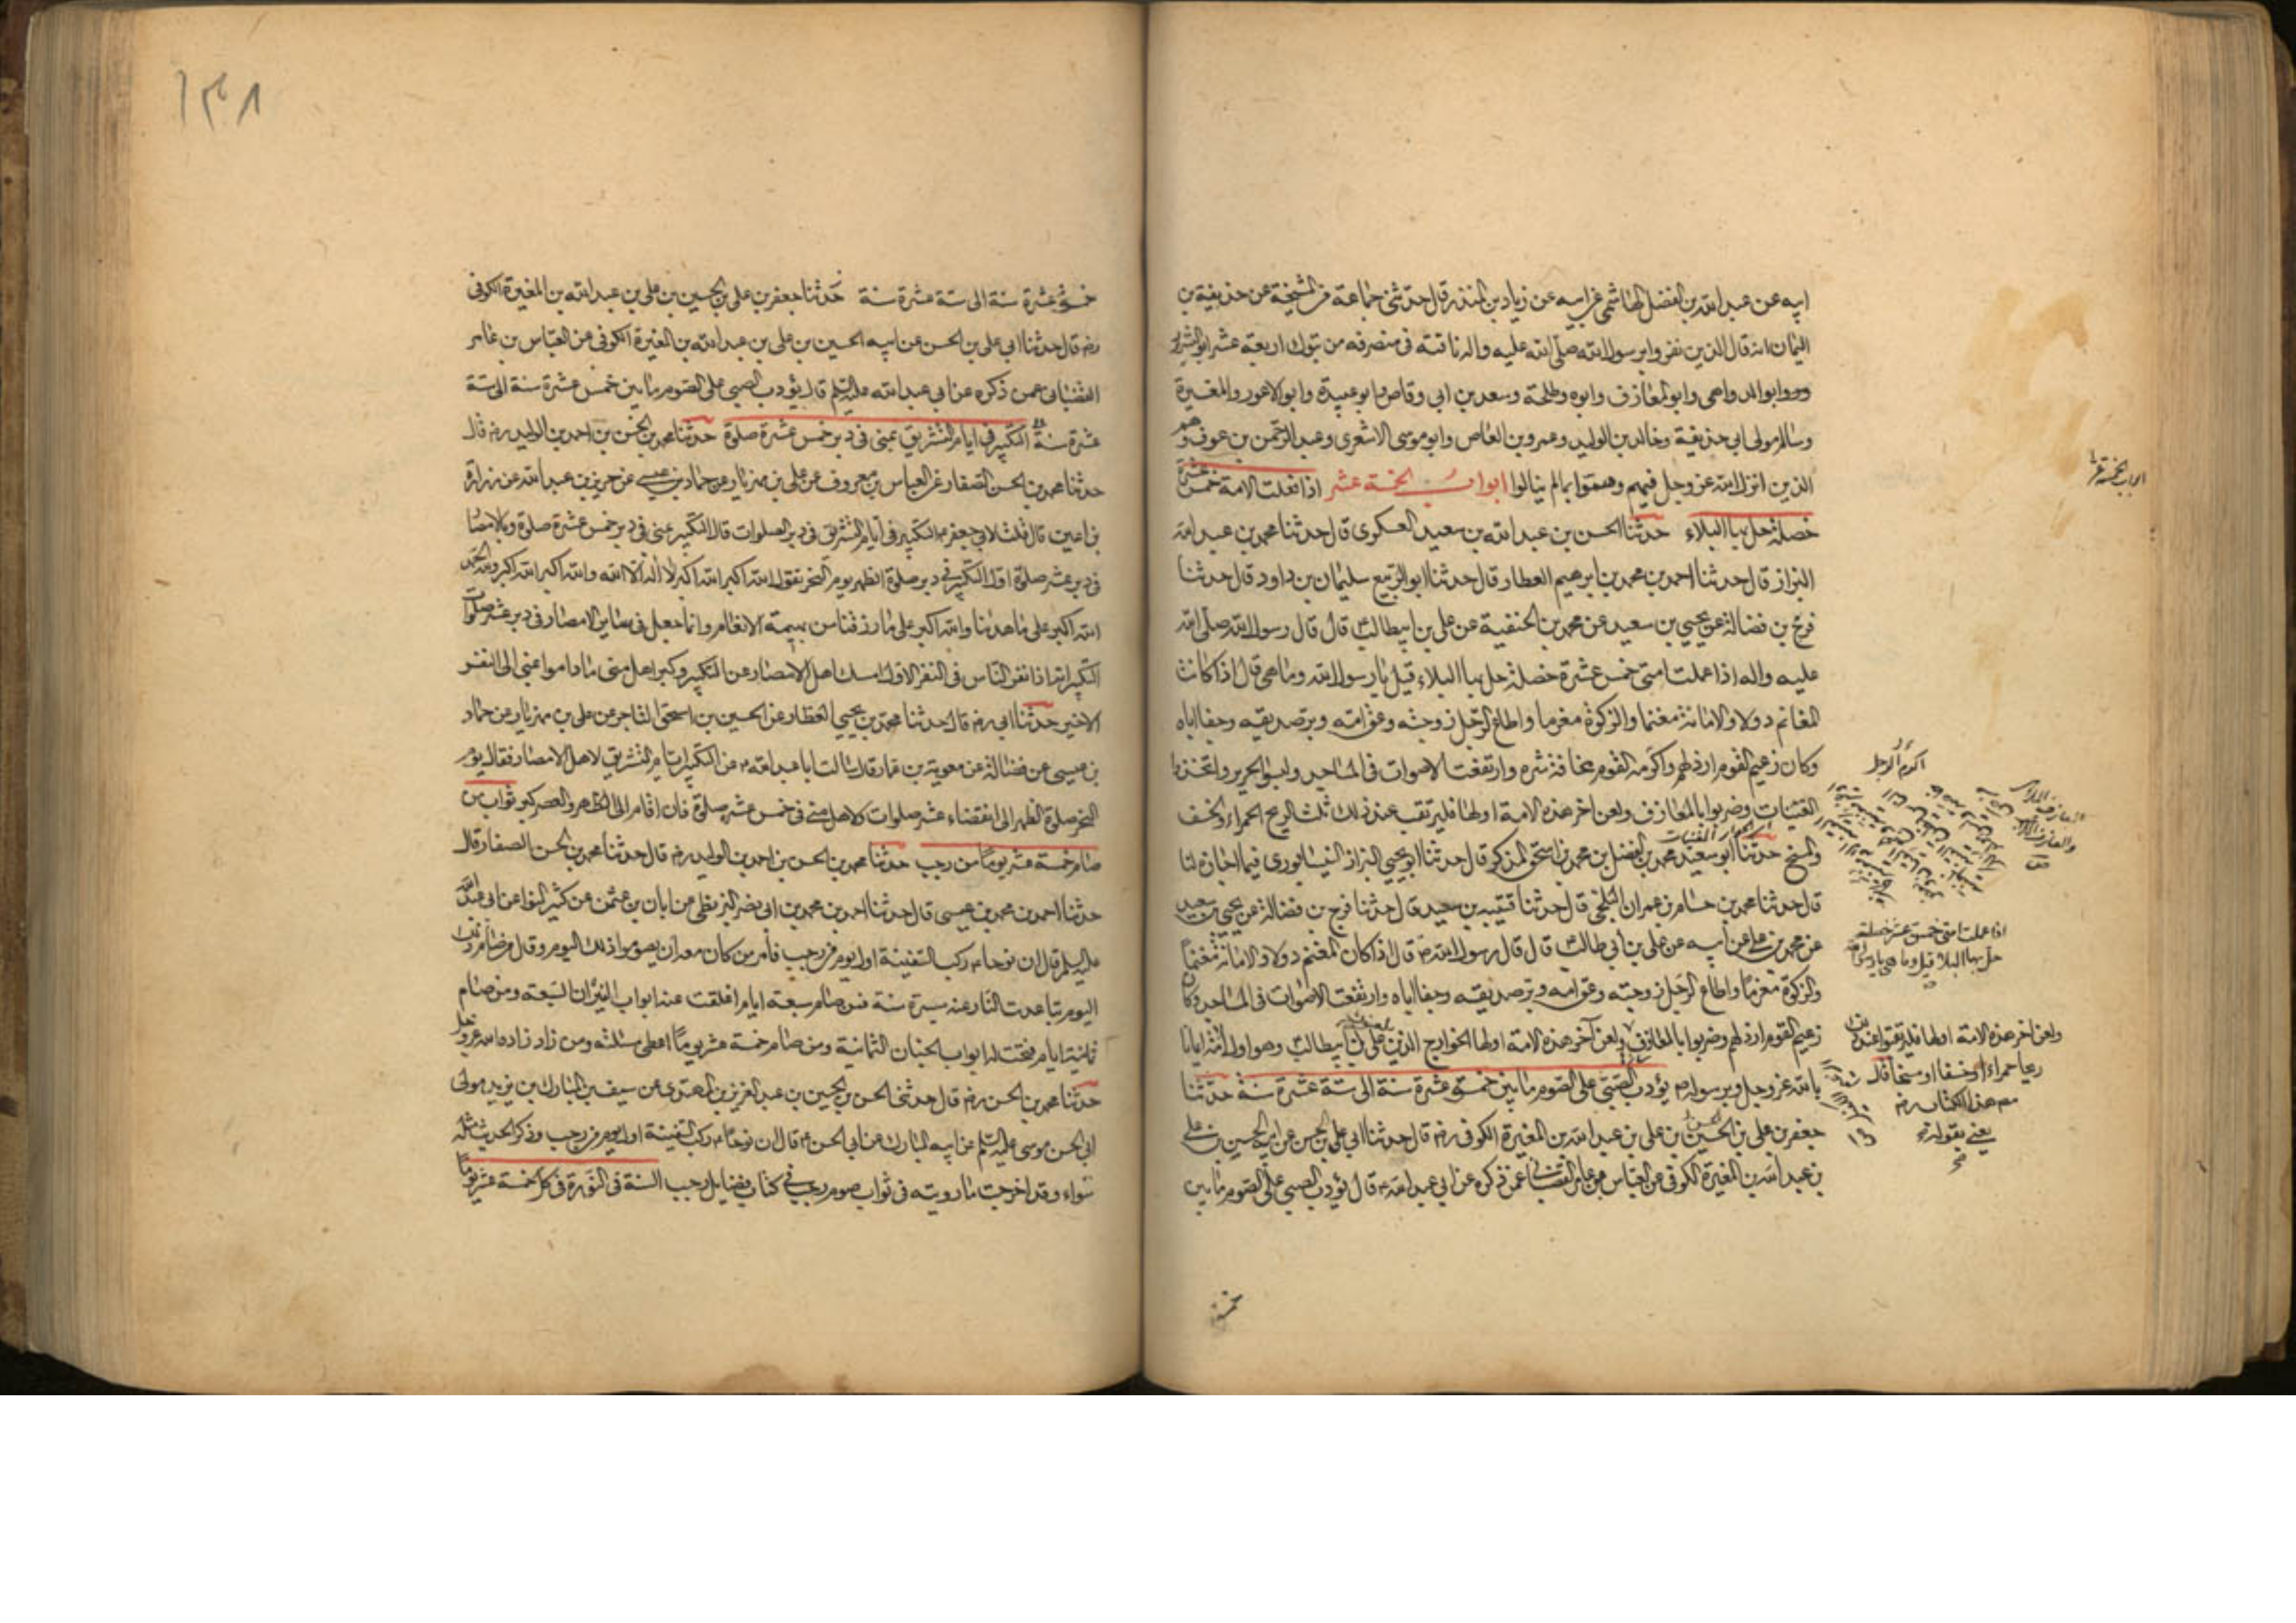 ابيه عن عبد الله بن الفضل الهاشمي عن ابيه عن زياد بن المنذر قال حدثني جماعة من المشيخة عن حذيفة بن
اليمان انه قال الذين نفروا برسول الله صلى الله عليه واله ناقته في منصرفه من تبوك اربعة عشر ابو الشرور
وابو الدواهي وابو المعازف وابوه وطلحة وسعد بن ابي وقاص وابو عبيدة وابو الاعور والمغيرة
وسالم مولى ابي حذيفة وخالد بن الوليد وعمرو بن العاص وابو موسى الاشعري وعبد الرحمن بن عوف وهم
الذين انزل الله عز وجل فيهم وهموا بما لم ينالوا ابواب الخمسة عشر اذا فعلت الامة خمس عشرة
خصلة حل بها البلاء حدثنا الحسن بن عبد الله بن سعيد العسكري قال حدثنا محمد بن عبد الله
البزاز قال حدثنا احمد بن محمد بن ابرهيم العطار قال حدثنا ابو الربيع سليمان بن داود قال حدثنا
فرج بن فضالة عن يحيى بن سعيد عن محمد بن الحنفية عن علي بن ابيطالب قال قال رسول الله صلى الله
عليه واله اذا عملت امتي خمس عشرة خصلة حل بها البلاء قيل يا رسول الله وما هي قال اذا كانت
المغانم دولا والامانة مغنما والزكوة مغرما واطاع الرجل زوجته وعق امه وبر صديقه وجفا اباه
وكان زعيم القوم ارذلهم واكرمه القوم مخافة شره وارتفعت الاصوات في المساجد ولبسوا الحرير واتخذوا
القينات وضربوا بالمعازف ولعن اخر هذه الامة اولها فليرتقب عند ذلك ثلث الريح الحمراء والخسف
والمسخ حدثنا ابو سعيد محمد بن الفضل بن محمد بن اسحق المذكر قال حدثنا ابو يحيى البزاز النيسابوري فيما اجازه لنا
قال حدثنا محمد بن حسام بن عمران البلخي قال حدثنا قتيبه بن سعيد قال حدثنا فرج بن فضالة عن يحيى بن سعيد
عن محمد بن علي عن ابيه عن علي بن ابي طالب قال قال رسول الله ص قال اذا كان المغنم دولا والامانة مغنما
والزكوة مغرما واطاع الرجل زوجته وعق امه وبر صديقه وجفا اباه وارتفعت الاصوات في المساجد وكان
زعيم القوم ارذلهم وضربوا بالمعازف ولعن آخر هذه الامة اولها الخوارج الذين علي بن ابيطالب وهو اول الامة ايمانا
بالله عز وجل وبرسوله يؤدب الصبي على الصوم ما بين خمسة عشرة سنة الى ستة عشرة سنة حدثنا
جعفر بن علي بن الحسين بن علي بن عبد الله بن المغيرة الكوفي رضه قال حدثنا ابي علي بن الحسن عن ابيه الحسين بن علي
بن عبد الله بن المغيرة الكوفي عن العباس بن عامر القصباني عمن ذكره عن ابي عبد الله ع قال يؤدب الصبي على الصوم ما بين
خمسة
اكرم الرجل
اذا عملت امتي خمس عشر خصلة
حل بها البلا قيل وما هي يا رسول الله
ولعن اخر هذه الامة اولها فليرتقبوا عند ذلك
ريحا حمراء او خسفا او مسخا قال
مص هذا الكتاب رضه
يعني بقوله
١٣٨
خمسة عشرة سنة الى ستة عشرة سنة حدثنا جعفر بن علي بن الحسين بن علي بن عبد الله بن المغيرة الكوفي
رضه قال حدثنا ابي علي بن الحسن عن ابيه الحسين بن علي بن عبد الله بن المغيرة الكوفي عن العباس بن عامر
القصباني عمن ذكره عن ابي عبد الله عليه السلم قال يؤدب الصبي على الصوم ما بين خمس عشرة سنة الى ستة
عشرة سنة التكبير في ايام التشريق بمنى في دبر خمس عشرة صلوة حدثنا محمد بن الحسن بن احمد بن الوليد رضه قال
حدثنا محمد بن الحسن الصفار عن العباس بن معروف عن علي بن مهزيار عن حماد بن عيسى عن حريز بن عبد الله عن زرارة
بن اعين قال قلت لابي جعفر ع التكبير في ايام التشريق في دبر الصلوات قال التكبير بمنى في دبر خمس عشرة صلوة وبالامصار
في دبر عشر صلوة اول التكبير في دبر صلوة الظهر يوم النحر تقول الله اكبر الله اكبر لا اله الا الله والله اكبر الله اكبر ولله الحمد
الله اكبر على ما هدينا والله اكبر على ما رزقنا من بهيمة الانعام وانما جعل في ساير الامصار في دبر عشر صلوات
التكبير انه اذا نفر الناس في النفر الاول امسك اهل الامصار عن التكبير وكبر اهل منى ما داموا بمنى الى النفر
الاخير حدثنا ابي رضه قال حدثنا محمد بن يحيى العطار عن الحسين بن اسحق التاجر عن علي بن مهزيار عن حماد
بن عيسى عن فضالة عن معوية بن عمار قال سالت ابا عبد الله ع عن التكبير ايام التشريق لاهل الامصار فقال يوم
النحر صلوة الظهر الى انقضاء عشر صلوات ولاهل منى في خمس عشر صلوة فان اقام الى الظهر والعصر كبر ثواب من
صام خمسة عشر يوما من رجب حدثنا محمد بن الحسن بن احمد بن الوليد رضه قال حدثنا محمد بن الحسن الصفار قال
حدثنا احمد بن محمد بن عيسى قال حدثنا احمد بن محمد بن ابي نصر البزنطي عن ابان بن عثمن عن كثير النوا عن ابي عبد الله
عليه السلم قال ان نوحا ع ركب السفينة اول يوم من رجب فامر من كان معه ان يصوموا ذلك اليوم وقال من صام ذلك
اليوم تباعدت النار عنه مسيرة سنة فمن صام سبعة ايام اغلقت عنه ابواب النيران السبعة ومن صام
ثمانية ايام فتحت له ابواب الجنان الثمانية ومن صام خمسة عشر يوما اعطي مسئلته ومن زاد زاده الله عز وجل
حدثنا محمد بن الحسن رضه قال حدثني الحسن بن الحسين بن عبد العزيز بن المهتدي عن سيف بن المبارك بن يزيد مولى
ابي الحسن موسى عليه السلم عن ابيه المبارك عن ابي الحسن ع قال ان نوحا ع ركب السفينة اول يوم من رجب وذكر الحديث مثله
سواء وقد اخرجت ما رويته في ثواب صوم رجب في كتاب فضايل رجب السنة في النورة في كل خمسة عشر يوما